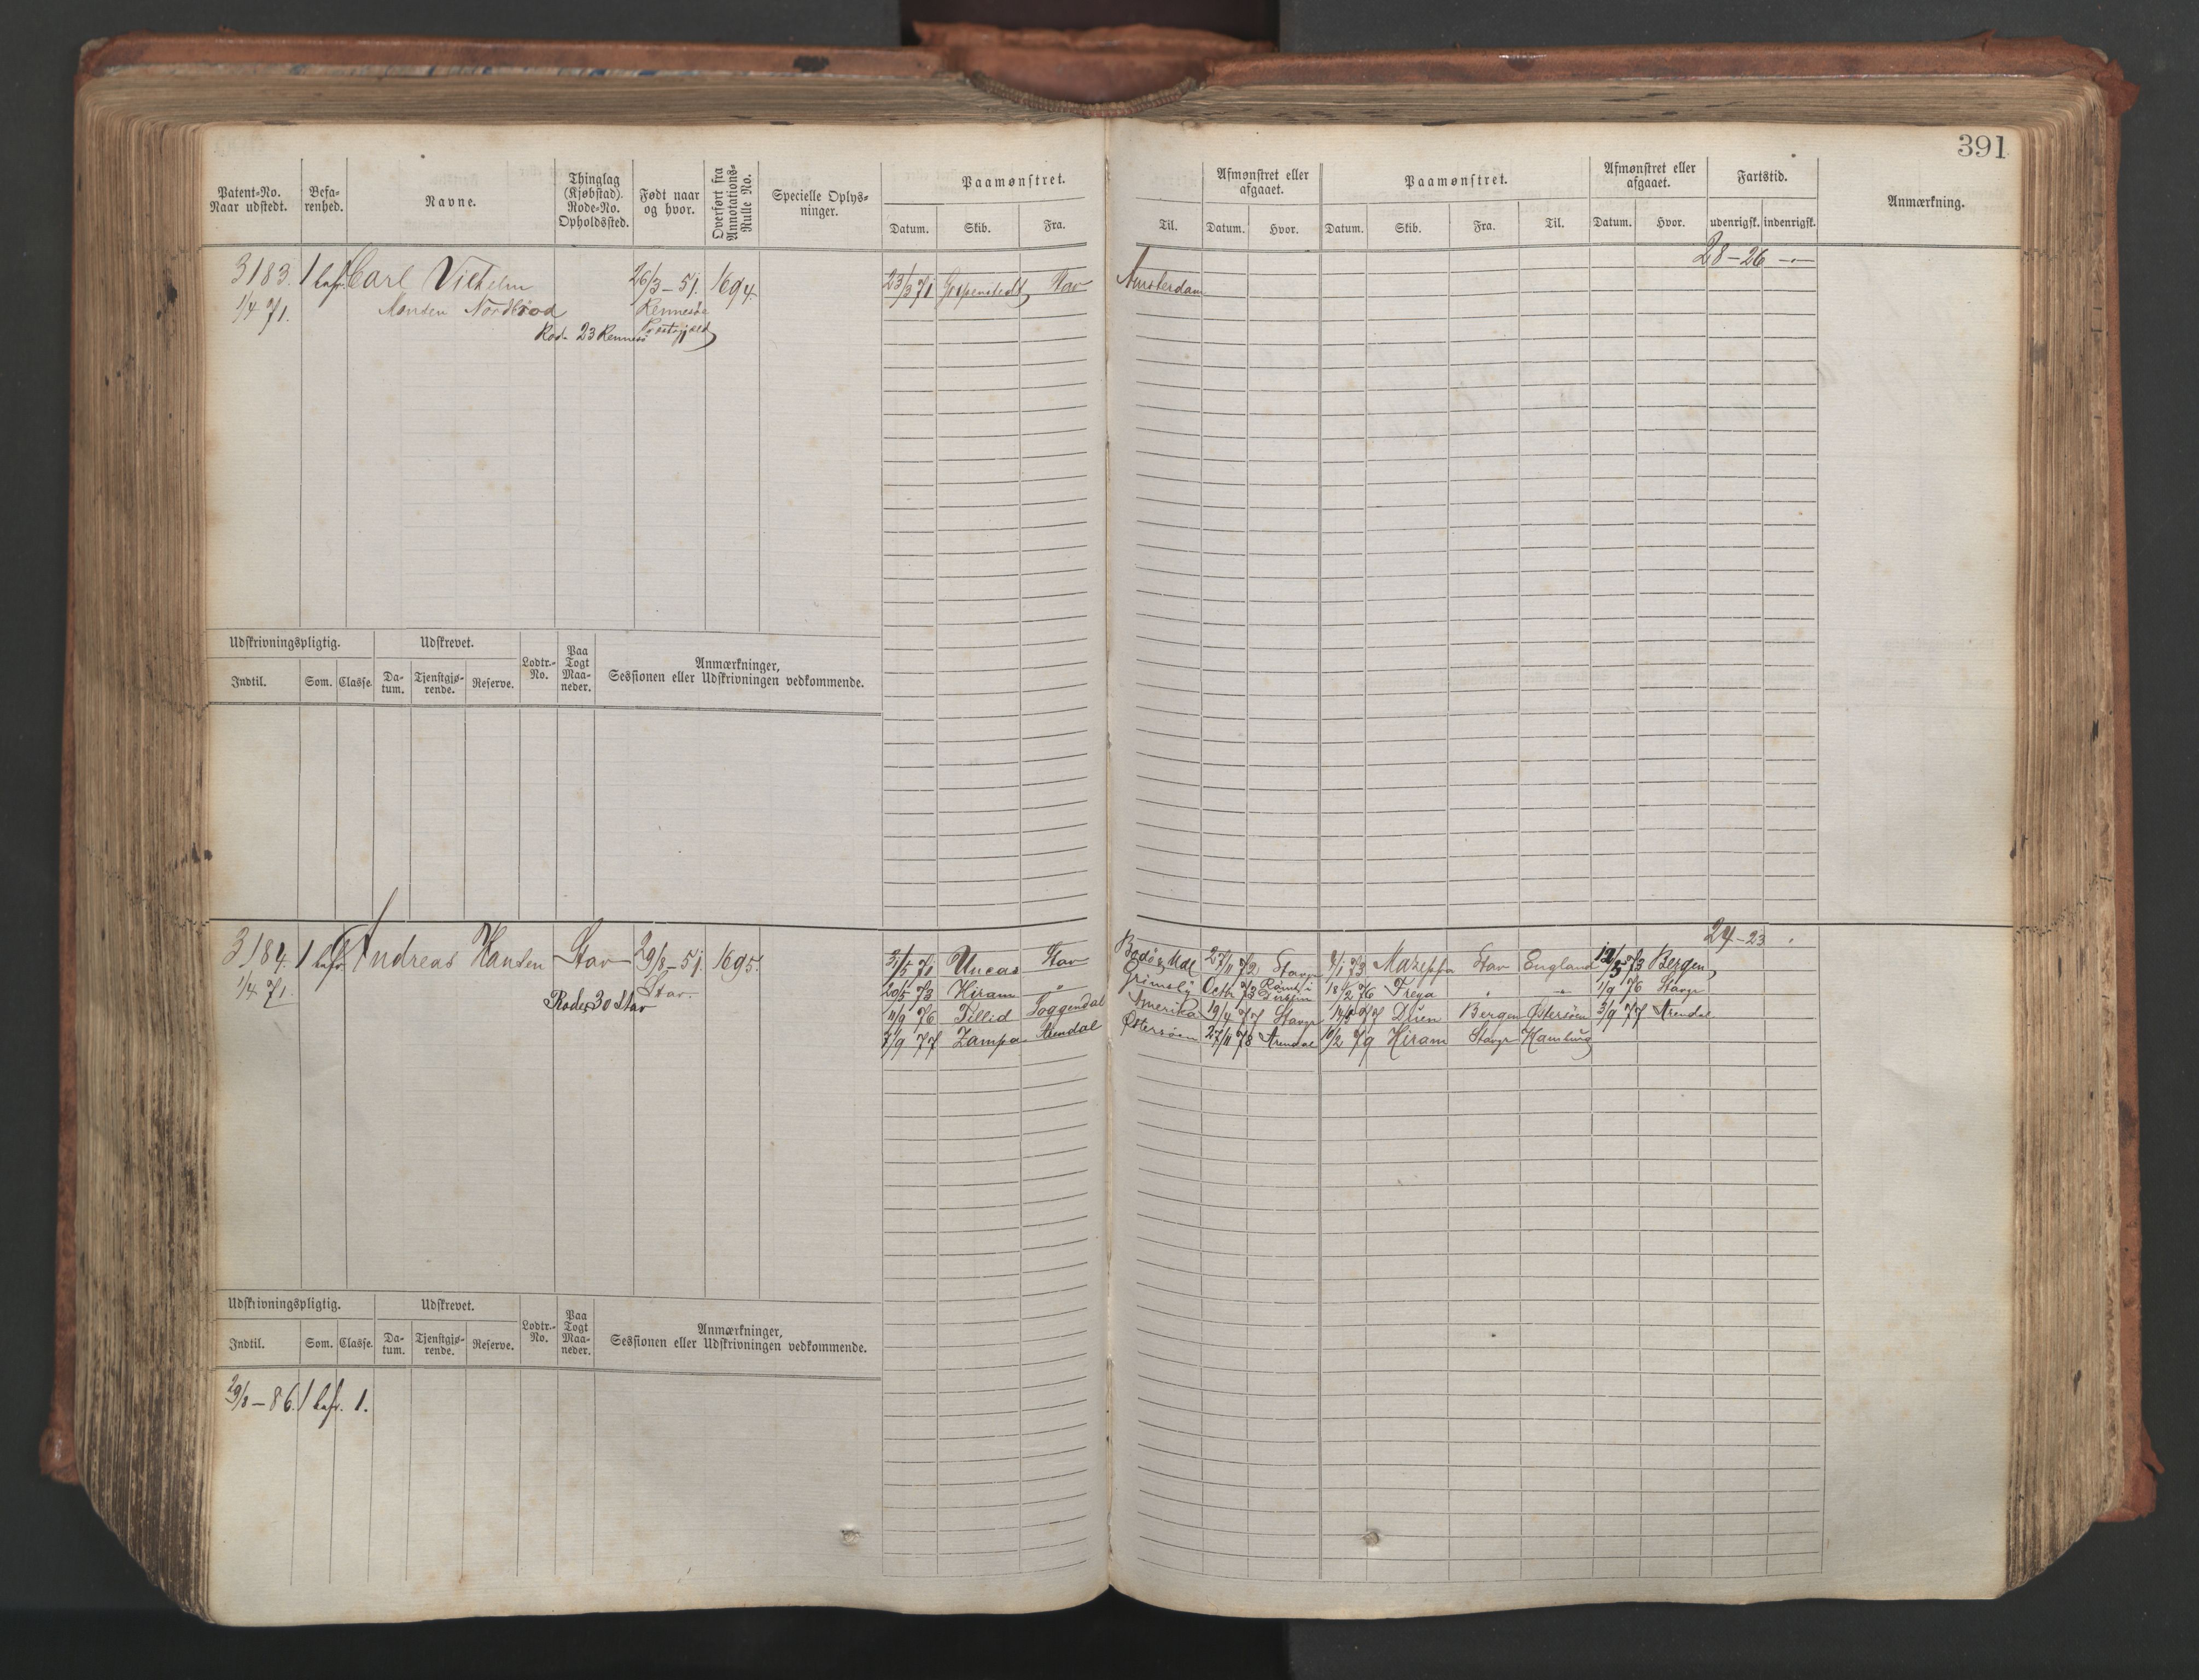 391
Patent-No. Naar udstedt.
Befarenhed.
Navne.
Thinglag (Kjøbstad). Rode-No. Opholdssted.
Født naar og hvor.
Overført fra Annotations-Rulle No.
Specielle Oplysninger.
Paamønstret.
Datum. Skib. Fra. Til.
Afmønstret eller afgaaet.
Datum. Hvor.
Paamønstret.
Datum. Skib. Fra. Til.
Afmønstret eller afgaaet.
Datum. Hvor.
Fartstid.
udenrigsk. indenrigsk.
Anmærkning.
28-26 -"-
3183. 1 bef. Carl Vilhelm 26/3-51. 1694. 23/3 71 Stav Amsterdam
1/4 71. Nordbröd Rennesö
Rode 23 Rennesö Præstegjeld
Udskrivningspligtig. Udskrevet. Lodtr.-No. Paa Togt Maaneder. Anmærkninger, Sessionen eller Udskrivningen vedkommende.
Indtil. Som. Classe. Datum. Tjenstgjørende. Reserve.
24-23
3184. 1 bef. Andreas Hansen Stav 29/8-51. 1695. 31/5 71 Uncas Stav Bodö & Udl 27/11 72 Stavgr 8/1 73 Mazeppa Stav England 12/5 73 Bergen
1/4 71. Stav. 20/5 73 Hiram " Grimsby Octb 73 18/2 76 Freya " " 11/9 76 Stavgr
Rode 30 Stav 11/9 76 Tillid Soggendal Amerika 19/4 77 Stavgr 14/5 77 Duen Bergen Østersøen 3/9 77 Arendal
7/9 77 Zampa Arendal Østersøen 27/11 78 Arendal 10/2 79 Hiram Stavgr Hamburg
Udskrivningspligtig. Udskrevet. Lodtr.-No. Paa Togt Maaneder. Anmærkninger, Sessionen eller Udskrivningen vedkommende.
Indtil. Som. Classe. Datum. Tjenstgjørende. Reserve.
29/8-86. 1 bef. 1.